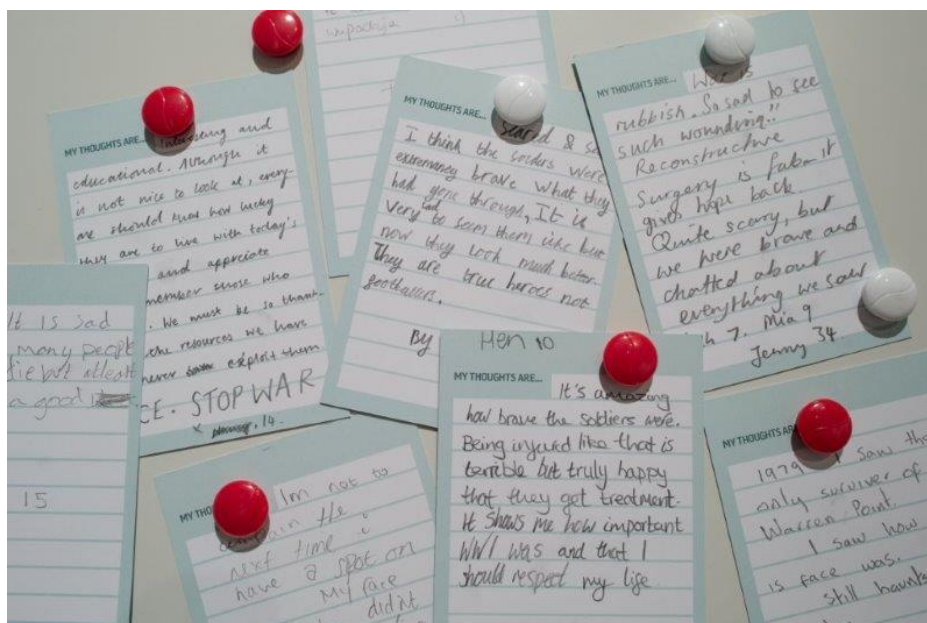 MY THOUGHTS ARE... Interesting and
educational. Although it
is not nice to look at, every-
one should know how lucky
they are to live with today's
and appreciate
member those who
. We must be so thank-
the resources we have
never exploit them
CE. STOP WAR
x 14.
MY THOUGHTS ARE... Scared & sa
I think the solders were
extremaney brave what they
had gone through, It is
very sad to seem them like but
now they look much better.
They are true heroes not
footballers.
By
Hen 10
MY THOUGHTS ARE... War is
rubbish. So sad to see
such wounding..
Reconstructive
Surgery is fab - it
gives hope back.
Quite scary, but
we were brave and
chatted about
everything we saw
h 7. Mia 9
Jenny 34.
It is sad
many people
die but atleast
a good
15
MY THO
Im not to
complain the
next time i
have a spot on
My face
didnt
MY THOUGHTS ARE...
It's amazing
how brave the soldiers were.
Being injured like that is
terrible but truly happy
that they got treatment.
It shows me how important
WW1 was and that I
should respect my life
MY THOUGHTS AR
1979 I saw the
only surviver of
Warren Point.
I saw how
is face was.
still haunts